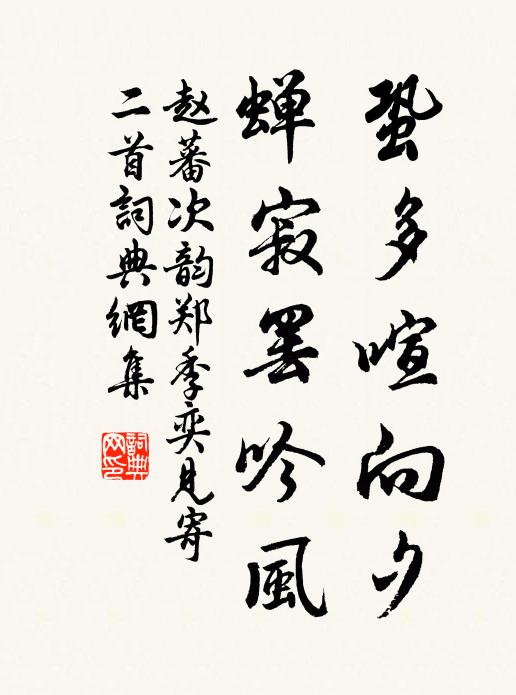 蛩多喧向夕
蝉寂罢吟風
赵蕃次韵郑季奕見寄
二首詞典網集
詞典网印